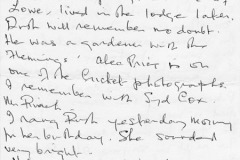 Lowe, lived in the lodge later.
Ruth will remember no doubt.
He was a gardener with the
Flemmings'. Alec Price is on
one of the Cricket photographs
I remember with Syd Cox.
Mr
I rang Ruth yesterday morning
for her birthday. She sounded
very bright.